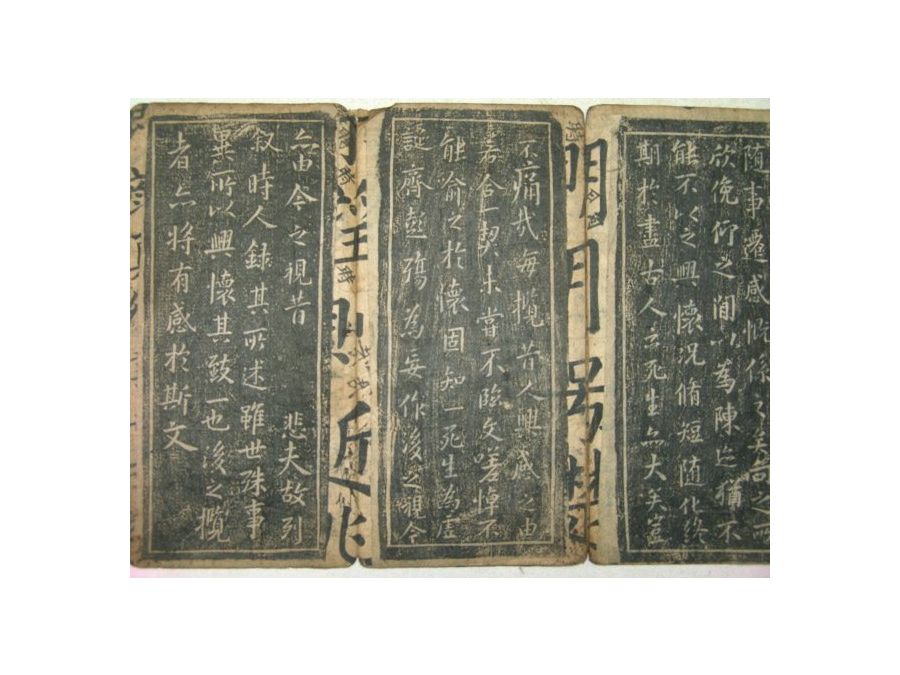 随事遷感慨係之矣向之所
欣俛仰之閒以為陳迹猶不
能不以之興懷況脩短随化終
期於盡古人云死生亦大矣豈
不痛哉每攬昔人興感之由
若合一契未嘗不臨文嗟悼不
能喻之於懷固知一死生為虛
誕齊彭殤為妄作後之視今
亦由今之視昔 悲夫故列
叙時人録其所述雖世殊事
異所以興懷其致一也後之攬
者亦将有感於斯文